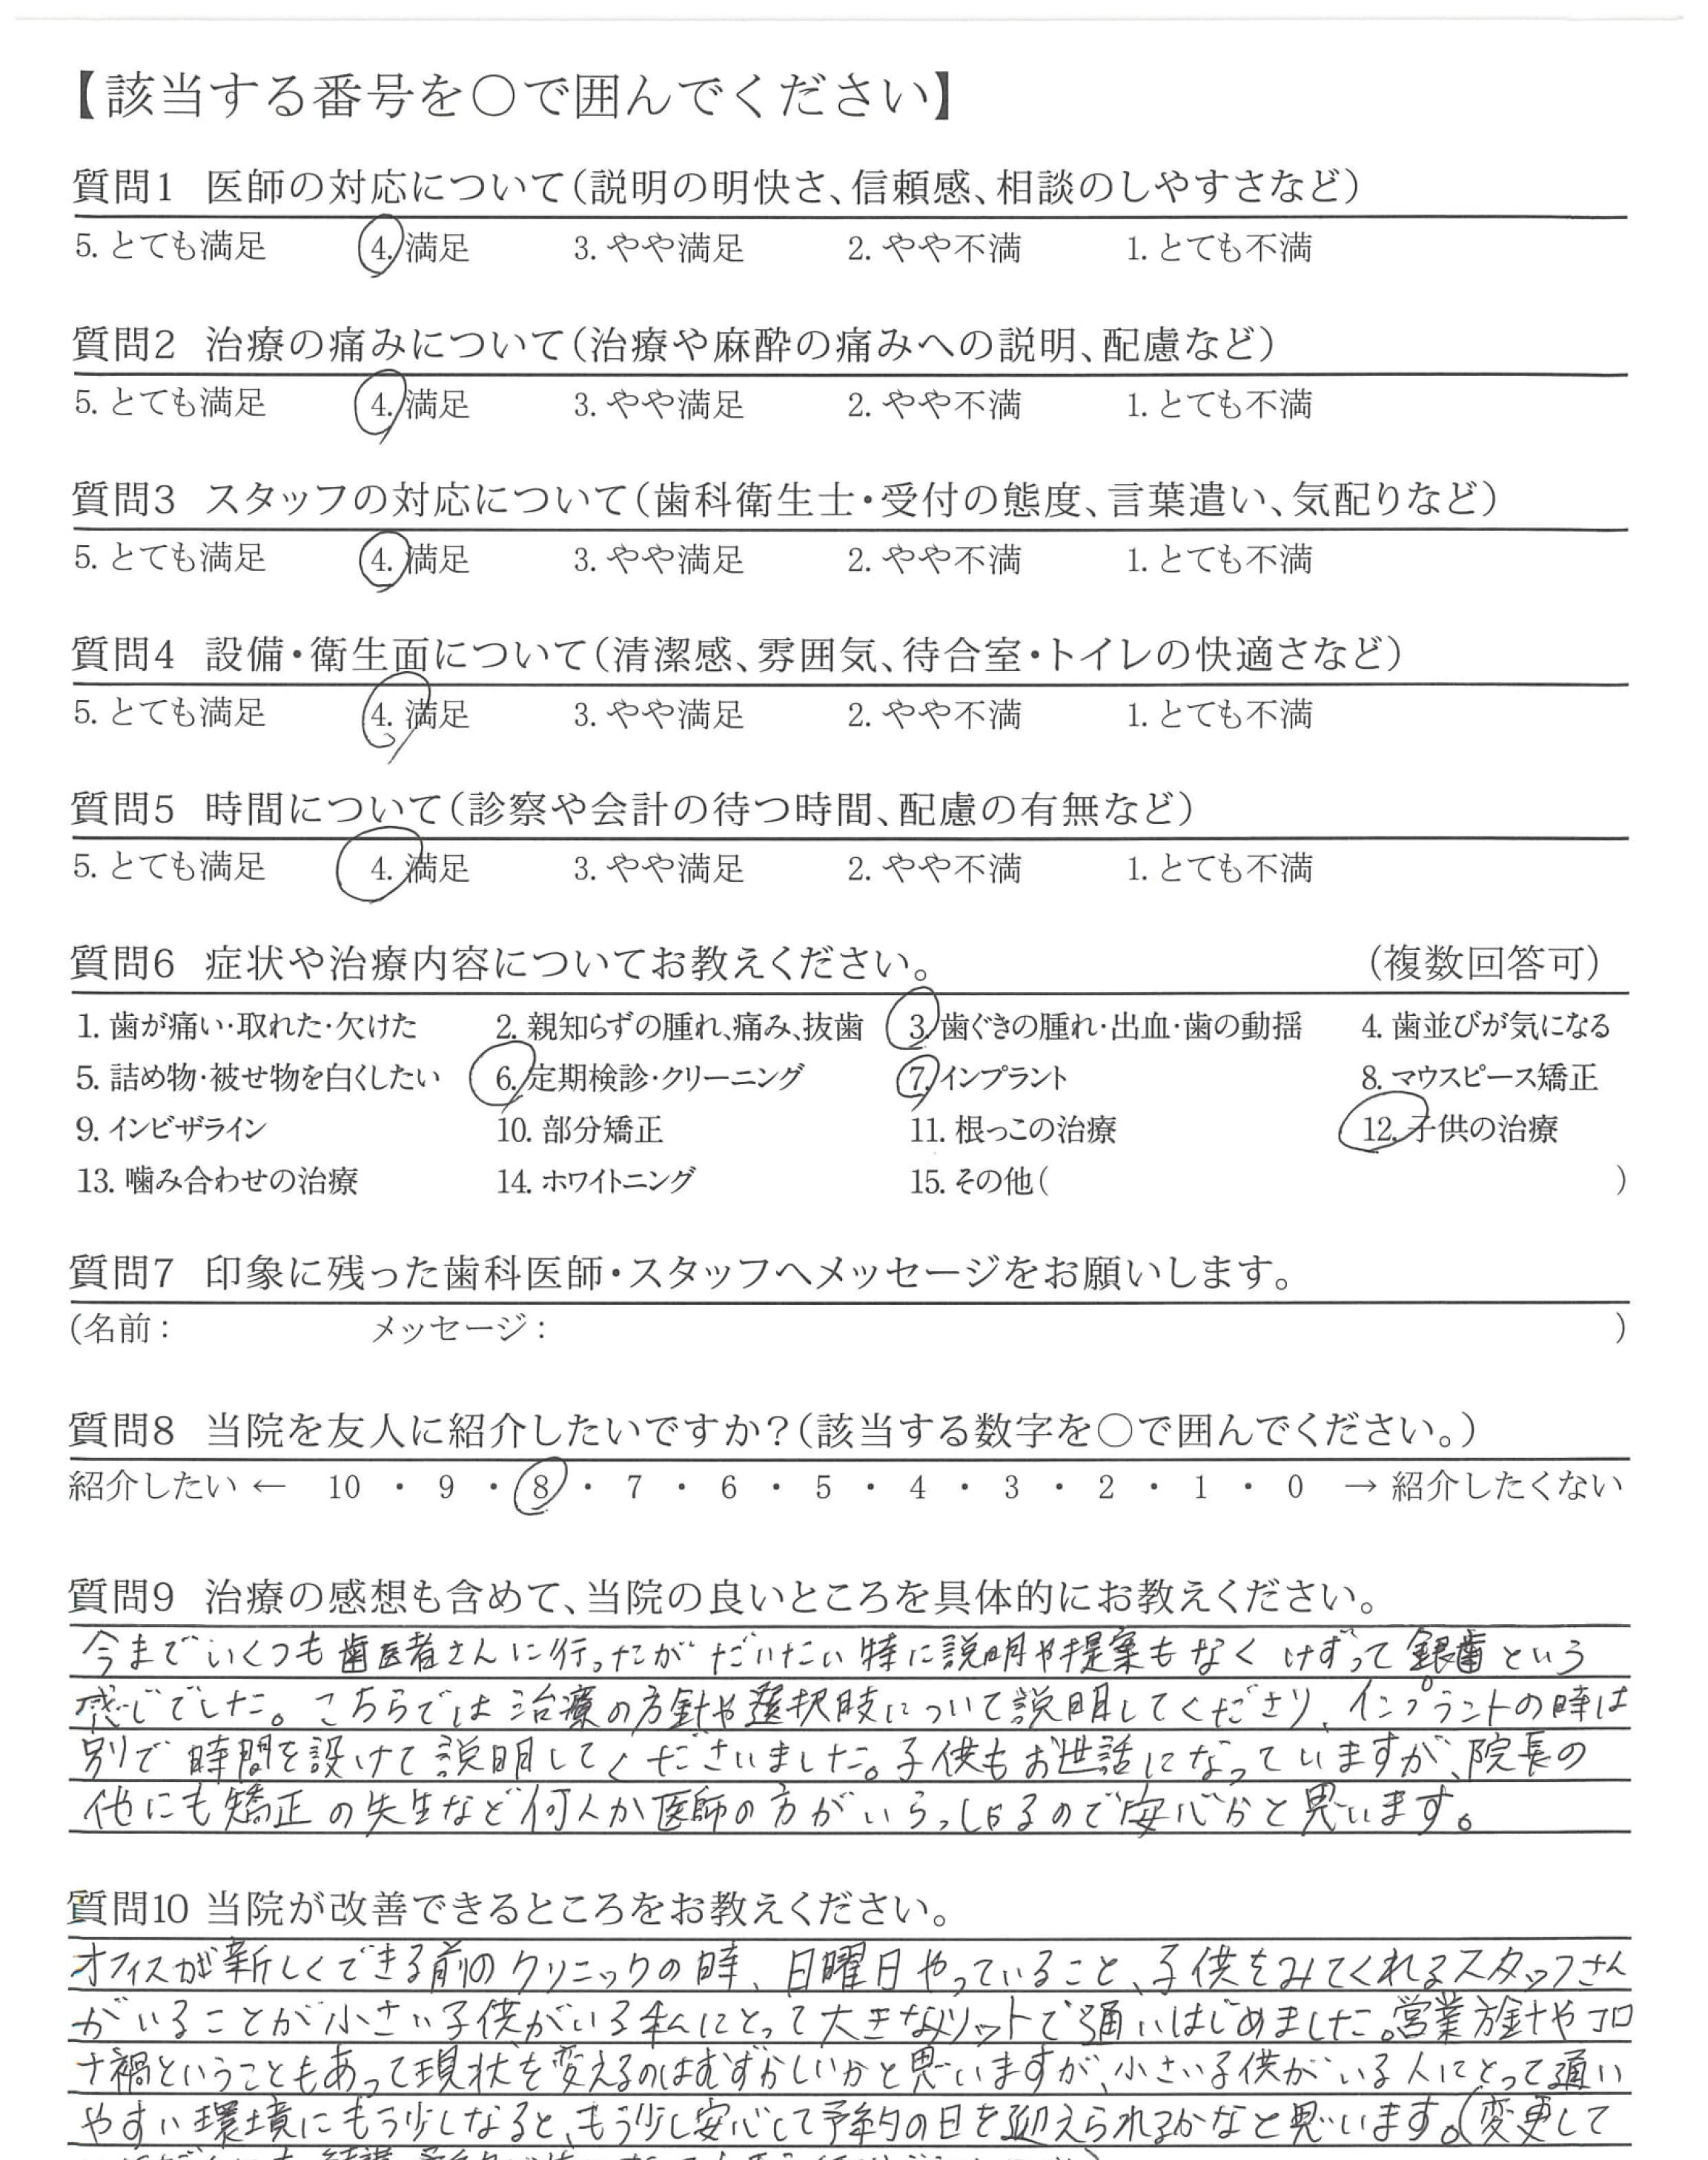 【該当する番号を○で囲んでください】
質問1 医師の対応について(説明の明快さ、信頼感、相談のしやすさなど)
5. とても満足 4. 満足 3. やや満足 2. やや不満 1. とても不満
質問2 治療の痛みについて(治療や麻酔の痛みへの説明、配慮など)
5. とても満足 4. 満足 3. やや満足 2. やや不満 1. とても不満
質問3 スタッフの対応について(歯科衛生士・受付の態度、言葉遣い、気配りなど)
5. とても満足 4. 満足 3. やや満足 2. やや不満 1. とても不満
質問4 設備・衛生面について(清潔感、雰囲気、待合室・トイレの快適さなど)
5. とても満足 4. 満足 3. やや満足 2. やや不満 1. とても不満
質問5 時間について(診察や会計の待つ時間、配慮の有無など)
5. とても満足 4. 満足 3. やや満足 2. やや不満 1. とても不満
質問6 症状や治療内容についてお教えください。 (複数回答可)
1. 歯が痛い・取れた・欠けた 2. 親知らずの腫れ、痛み、抜歯 3. 歯ぐきの腫れ・出血・歯の動揺 4. 歯並びが気になる
5. 詰め物・被せ物を白くしたい 6. 定期検診・クリーニング 7. インプラント 8. マウスピース矯正
9. インビザライン 10. 部分矯正 11. 根っこの治療 12. 子供の治療
13. 噛み合わせの治療 14. ホワイトニング 15. その他( )
質問7 印象に残った歯科医師・スタッフへメッセージをお願いします。
(名前: メッセージ: )
質問8 当院を友人に紹介したいですか?(該当する数字を○で囲んでください。)
紹介したい ← 10 ・ 9 ・ 8 ・ 7 ・ 6 ・ 5 ・ 4 ・ 3 ・ 2 ・ 1 ・ 0 → 紹介したくない
質問9 治療の感想も含めて、当院の良いところを具体的にお教えください。
今までいくつも歯医者さんに行ったがだいたい特に説明や提案もなくけずって銀歯という
感じでした。こちらでは治療の方針や選択肢について説明してくださり、インプラントの時は
別で時間を設けて説明してくださいました。子供もお世話になっていますが、院長の
他にも矯正の先生など何人か医師の方がいらっしゃるので安心かと思います。
質問10 当院が改善できるところをお教えください。
オフィスが新しくできる前のクリニックの時、日曜日やっていること、子供をみてくれるスタッフさん
がいることが小さい子供がいる私にとって大きなメリットで通いはじめました。営業方針やコロ
ナ禍ということもあって現状を変えるのはむずかしいかと思いますが、小さい子供がいる人にとって通い
やすい環境にもう少しなると、もう少し安心して予約の日を迎えられるかなと思います。(変更して